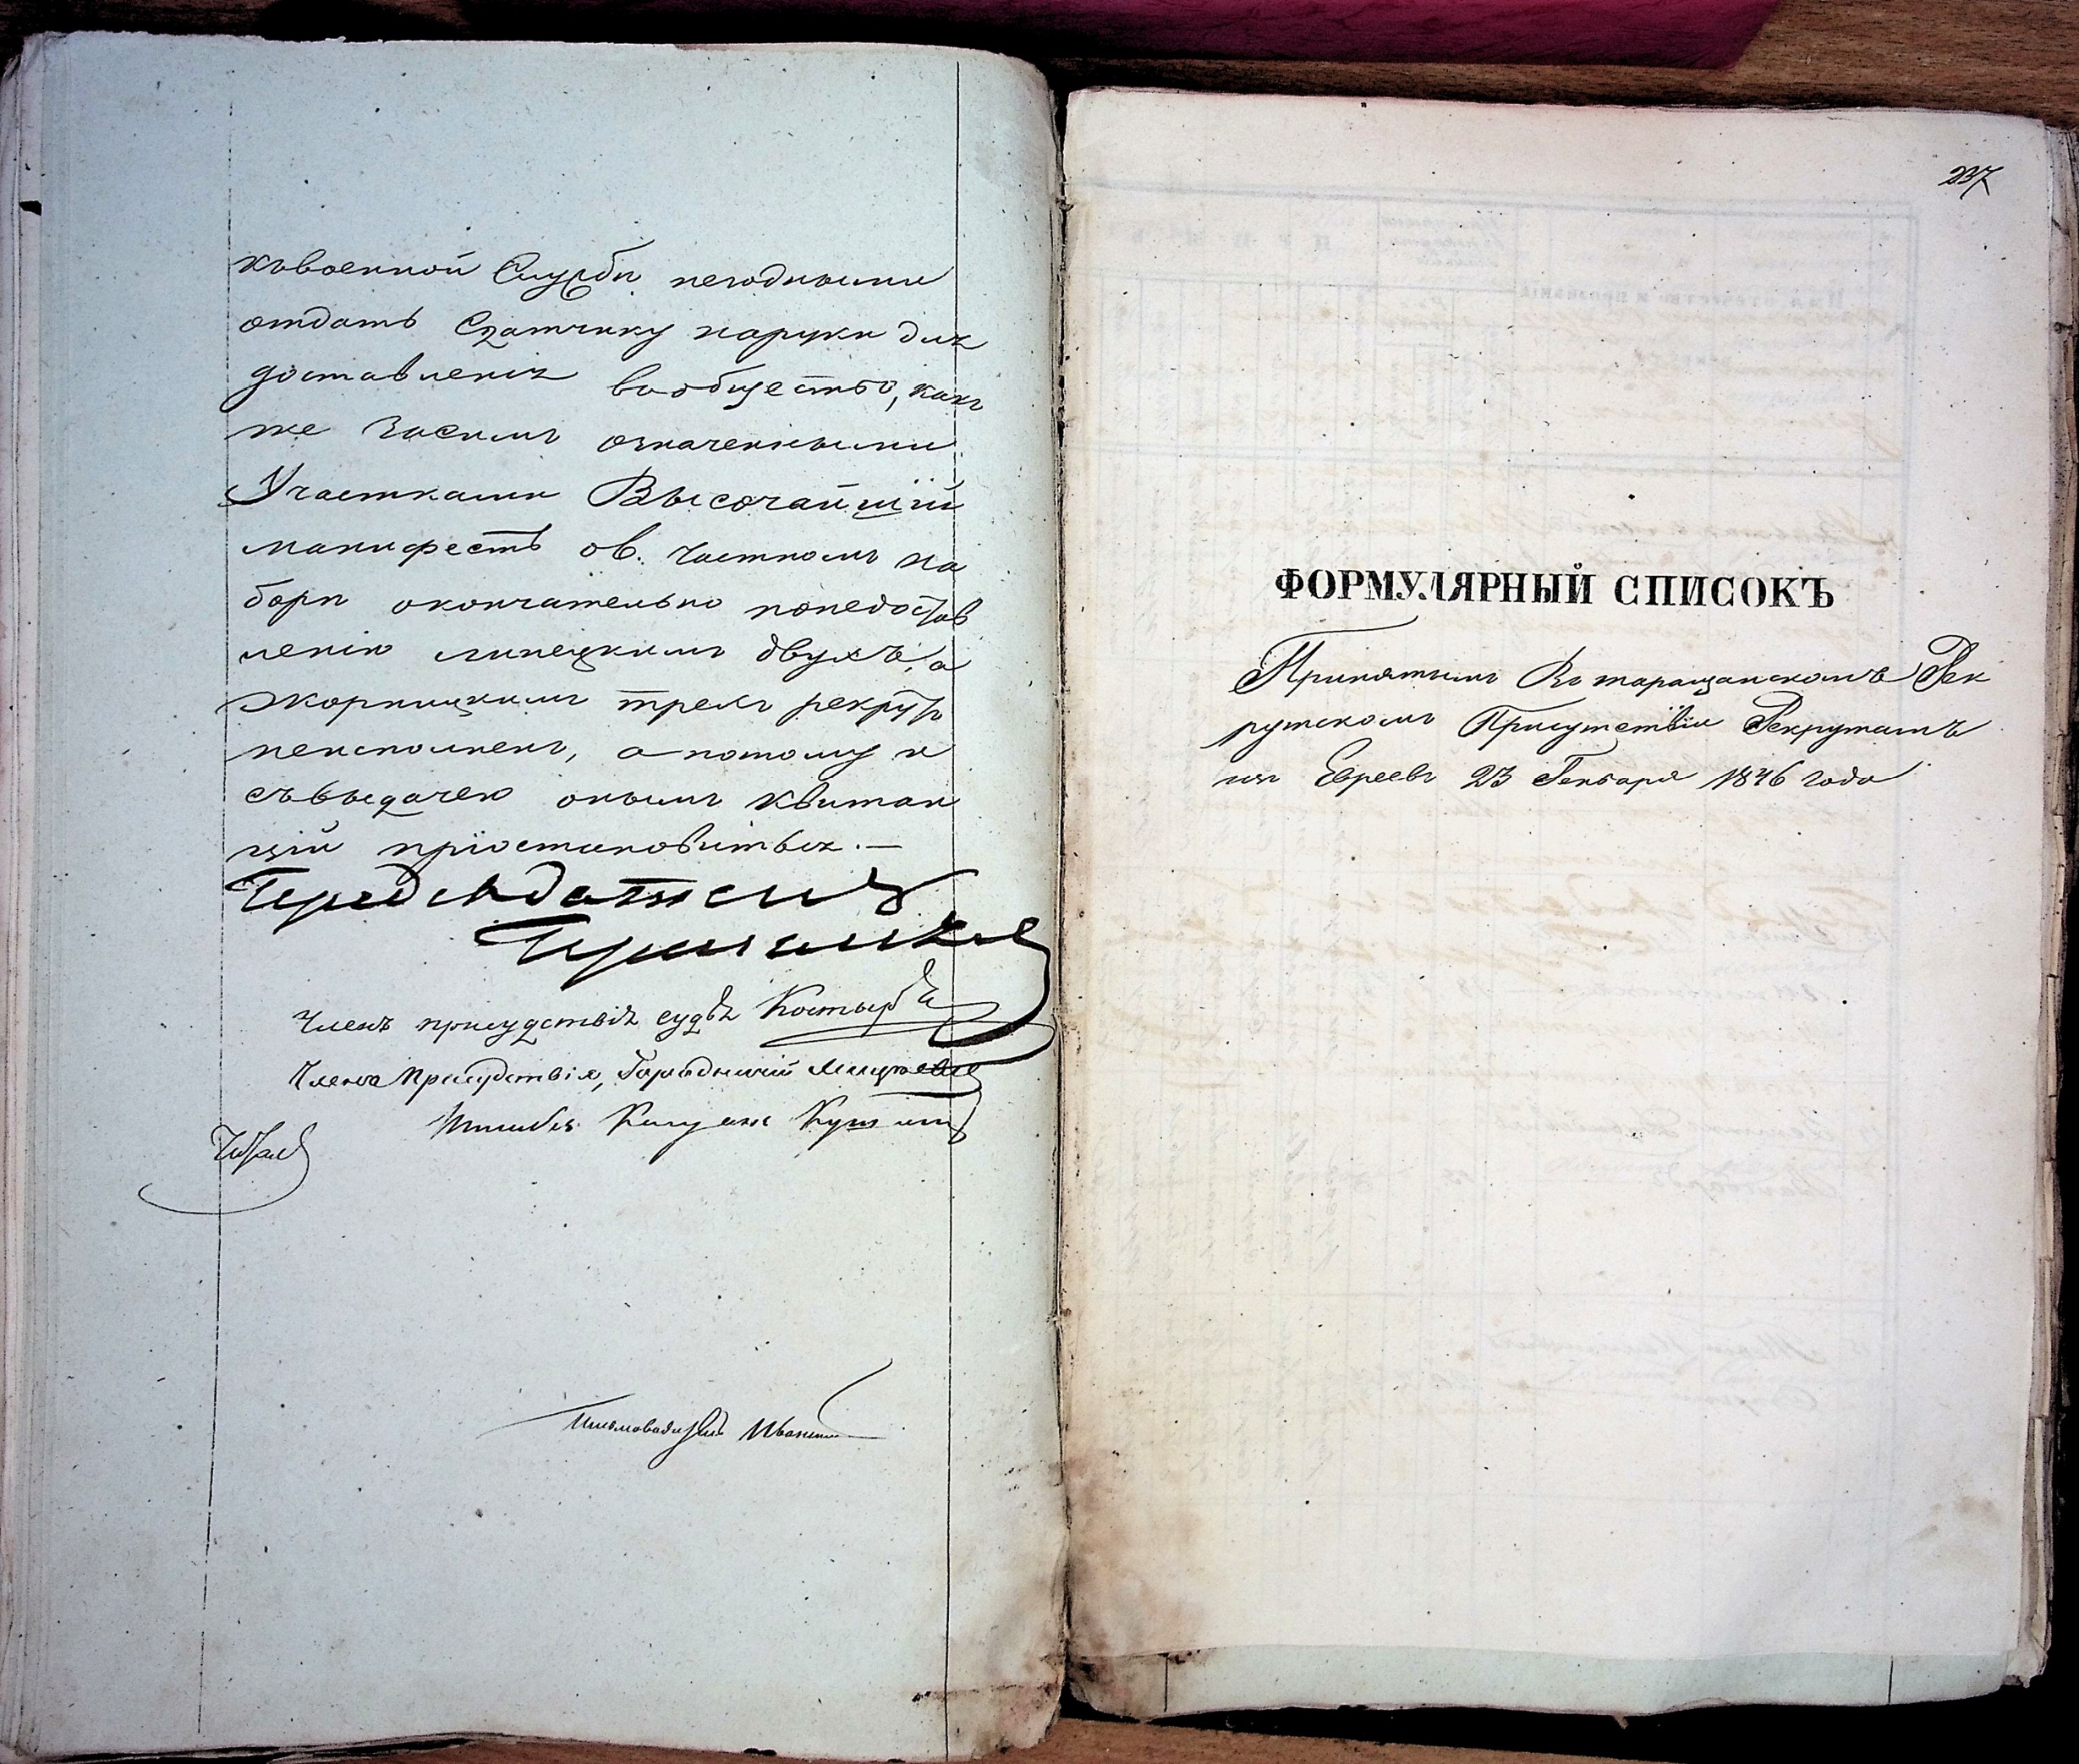 къвоенной Службы негодными
отдать Сдатчику наруки для
доставленія вообщество, какъ
же засимъ означенными
Участками Высочайшій
манифестъ о в. частномъ на
боры окончательно понедостав
ленію липецкимъ двухъ, а
жорницкимъ трехъ рекрутъ
неисполненъ, а потому и
съвыдачею онымъ квитан
цій пріостановиться. —
Председатель
Членъ присудствія судья Костырба
Члена Присудствія, Городничій
Письмоводитель Иваницкій
237
ФОРМУЛЯРНЫЙ СПИСОКЪ
Принятымъ Въ таращанскомъ Рек
рутскомъ Присутствіи Рекрутамъ
изъ Евреевъ 23 Генваря 1846 года